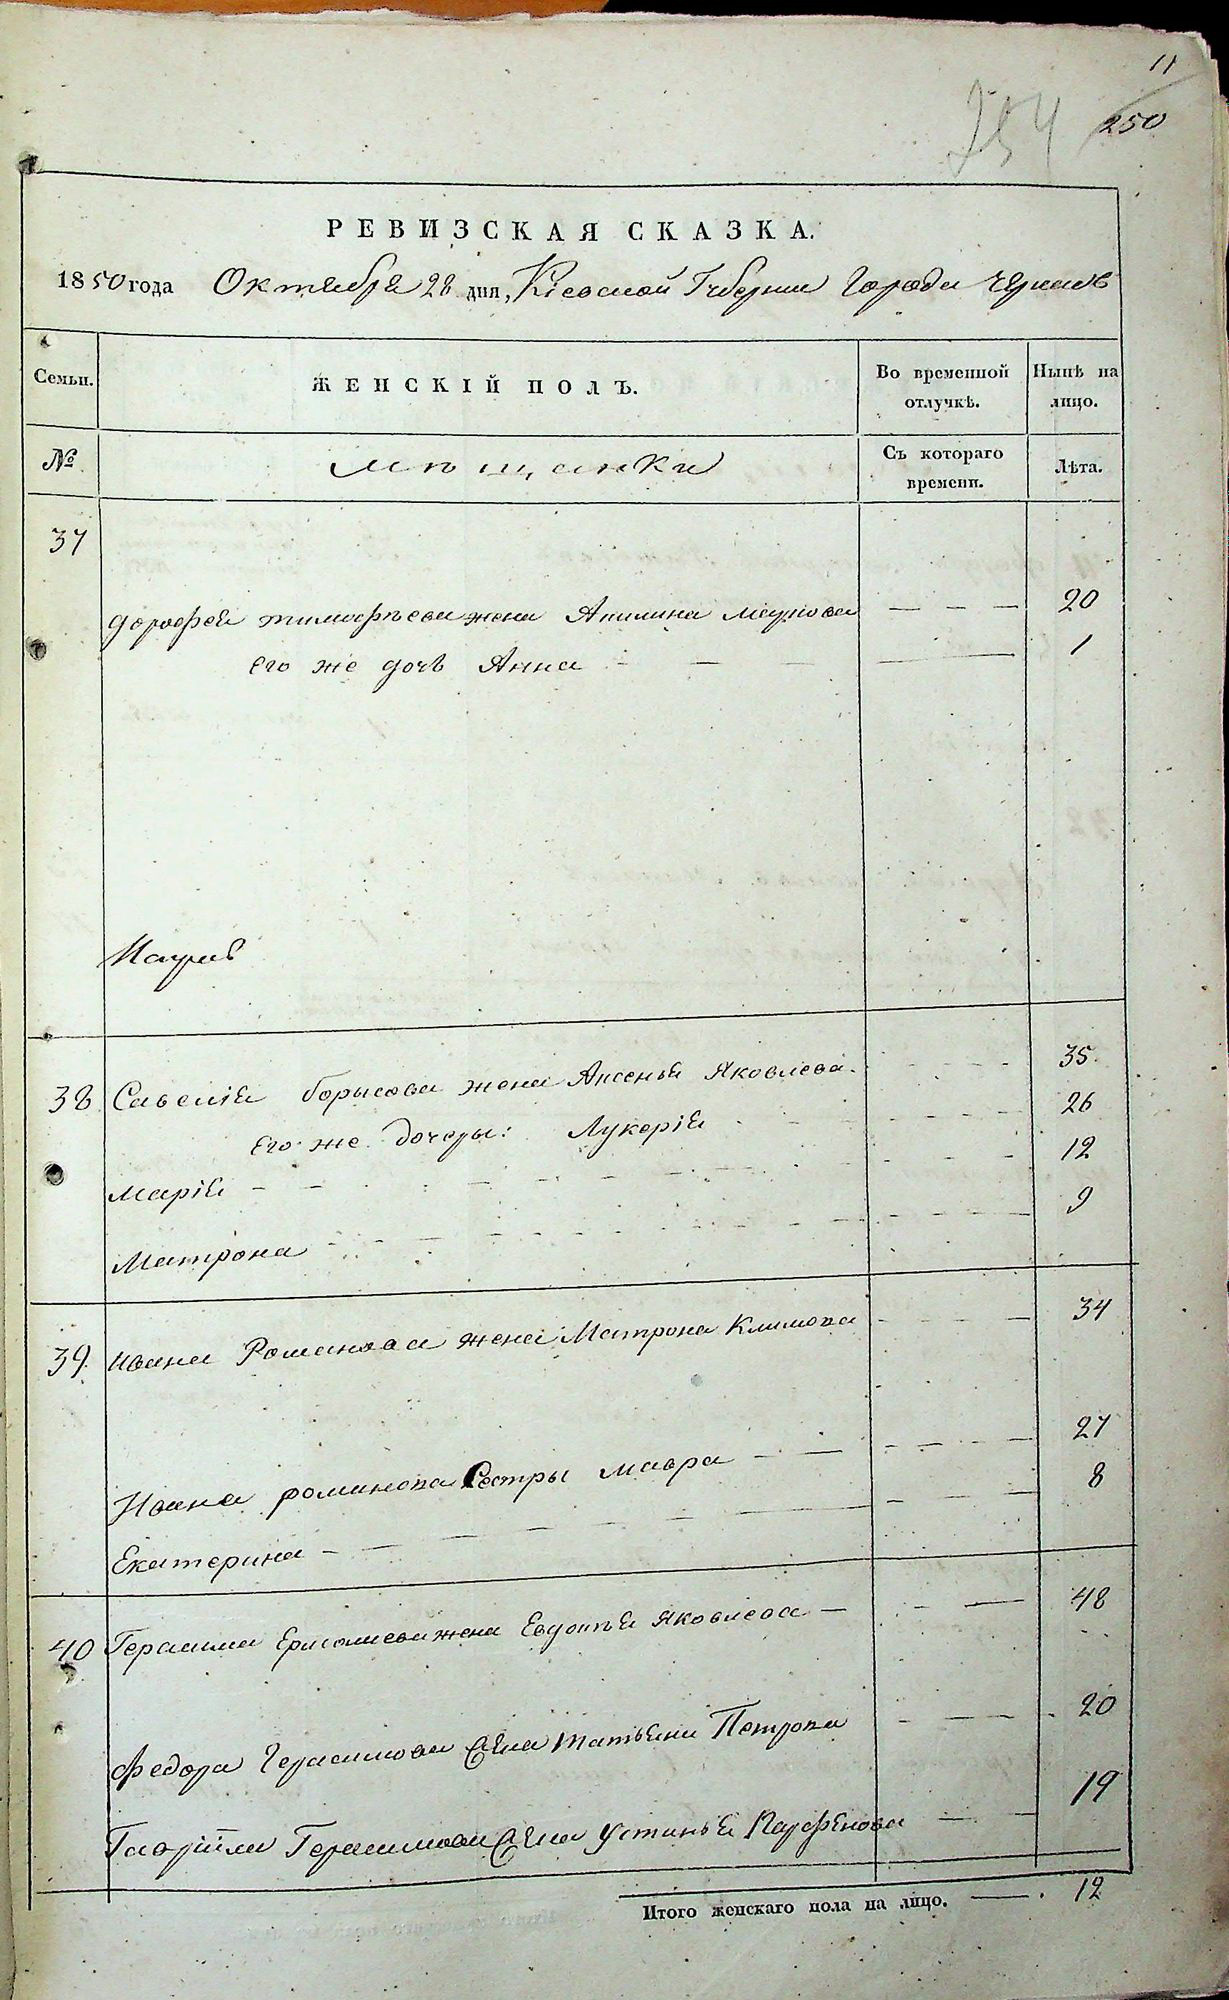 11
250
254
РЕВИЗСКАЯ СКАЗКА.
1850 года Октября 28 дня, Кіевской Губерніи Города Черкасъ
Семьи. ЖЕНСКІЙ ПОЛЪ. Во временной отлучкѣ. Нынѣ на лицо.
№ Мѣщанки Съ котораго времени. Лѣта.
37
Дорофея Тимофѣева жена Акилина Маркова — — — 20
Его же дочь Анна — — — 1
38 Савелія Борысова жена Аксенья Яковлева 35
Его же дочеры: Лукерія 26
Марія 12
Матрона 9
39 Ивана Романова жена Матрона Климова 34
Ивана Романова Сестры Мавра — — 27
Екатерина 8
40 Герасима Ермолаева жена Евдокья Яковлева — 48
Федора Герасимова жена Татьяна Петрова 20
Гавріила Герасимова жена Устинья Парфенова — 19
Итого женскаго пола на лицо. — 12